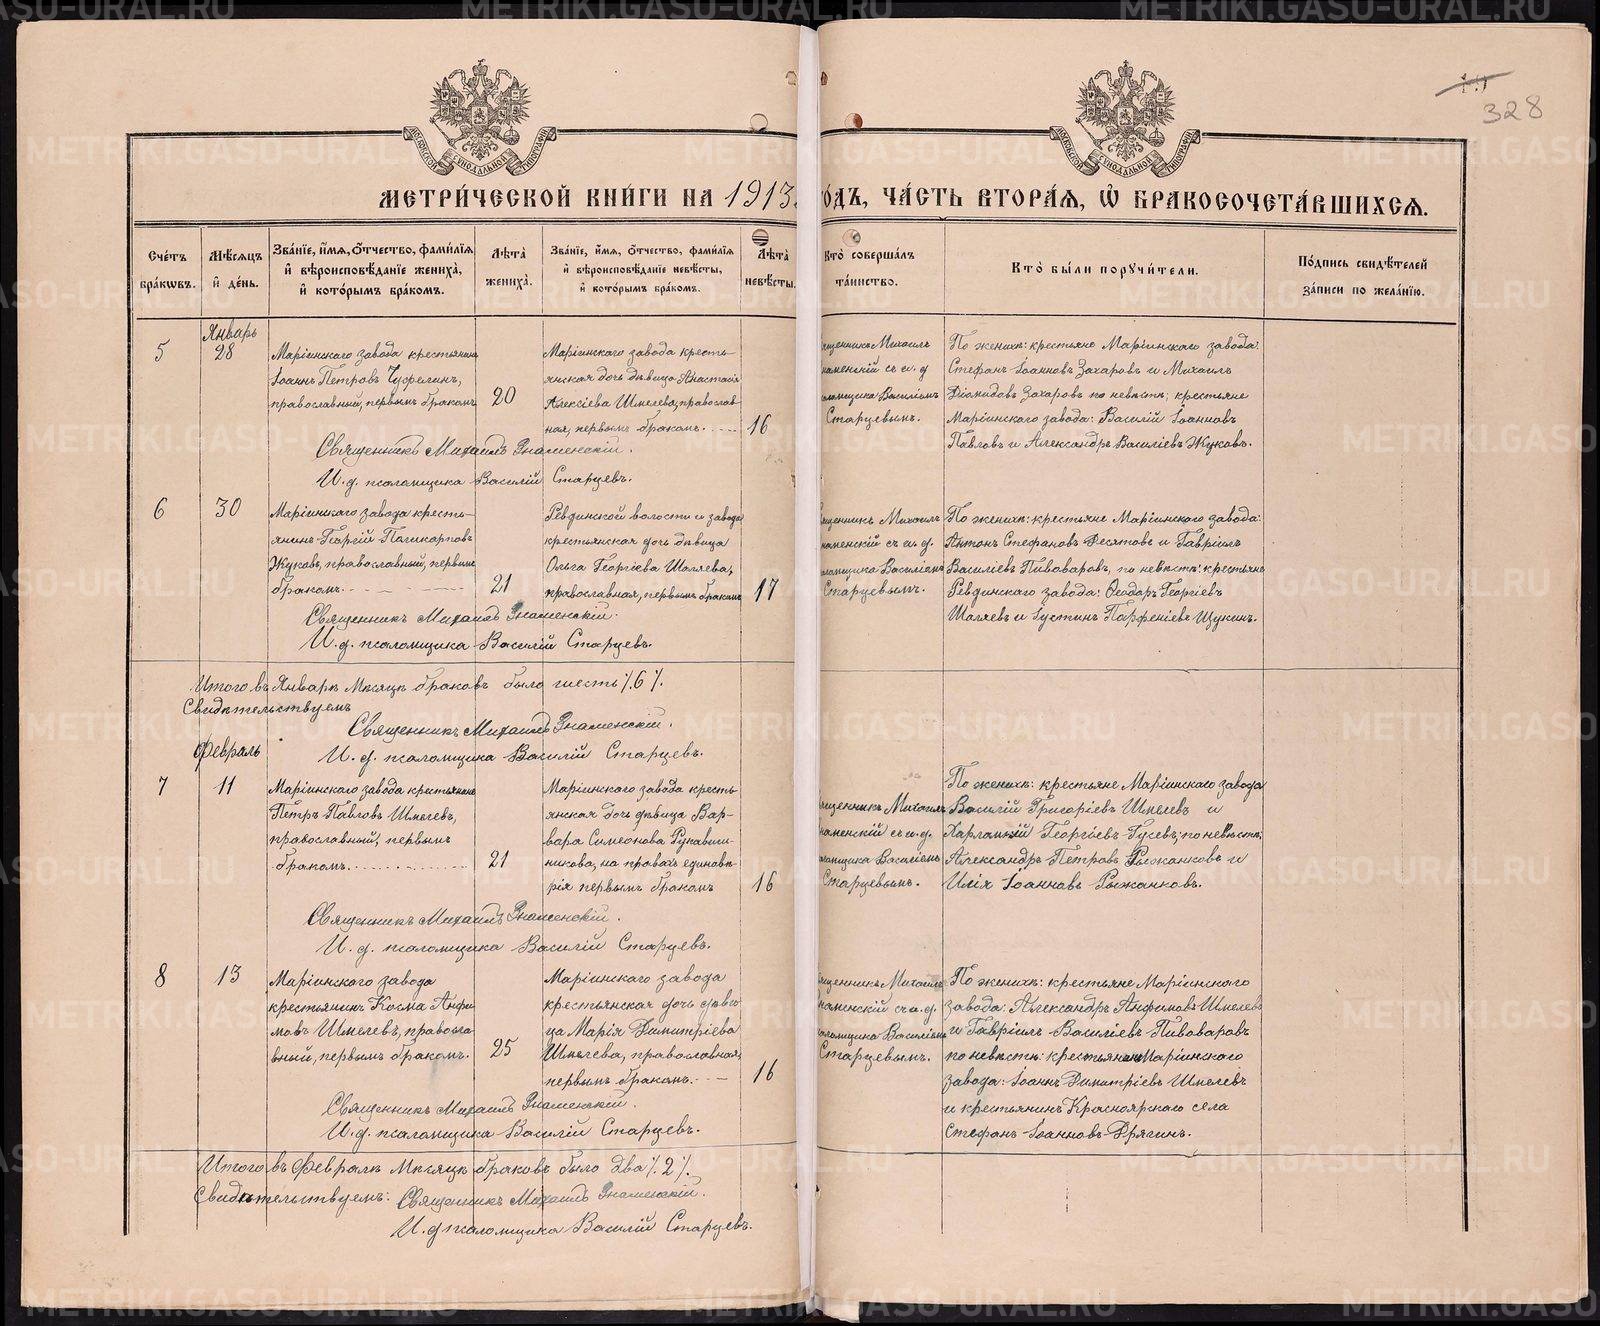 328
МЕТРИ́ЧЕСКОЙ КНИ́ГИ НА 1913 ГОДЪ, ЧА́СТЬ ВТОРА́Я, Ѽ БРАКОСОЧЕТА́ВШИХСЯ.
Сче́тъ бра́кѡвъ.
Мѣ́сяцъ и҆ де́нь.
Зва́нїе, и҆́мя, ѻ҆́тчество, фами́лїя и҆ вѣроисповѣ́данїе жениха̀, и҆ кото́рымъ бра́комъ.
Лѣ́та̀ жениха̀.
Зва́нїе, и҆́мя, ѻ҆́тчество, фами́лїя и҆ вѣроисповѣ́данїе невѣ́сты, и҆ кото́рымъ бра́комъ.
Лѣ́та̀ невѣ́сты.
Кто̀ соверша́лъ та́инство.
Кто̀ бы́ли порꙋчи́тели.
По́дпись свидѣ́телей за́писи по жела́нїю.
Январь
5
28
Маріинскаго завода крестьянинъ
Іоаннъ Петровъ Чуфелинъ,
православный, первымъ бракомъ
20
Маріинскаго завода кресть-
янская дочь дѣвица Анастасія
Алексіева Шмелева, православ-
ная, первымъ бракомъ.
16
Священникъ Михаилъ
Знаменскій съ и. д.
псаломщика Василіемъ
Старцевымъ.
По женихѣ: крестьяне Маріинскаго завода:
Стефанъ Іоанновъ Захаровъ и Михаилъ
Діомидовъ Захаровъ по невѣстѣ; крестьяне
Маріинскаго завода: Василій Іоанновъ
Павловъ и Александръ Василіевъ Жуковъ.
Священникъ Михаилъ Знаменскій.
И. д. псаломщика Василій Старцевъ.
6
30
Маріинскаго завода кресть-
янинъ Георгій Поликарповъ
Жуковъ, православный, первымъ
бракомъ.
21
Ревдинской волости и завода
крестьянская дочь дѣвица
Ольга Георгіева Шаляева,
православная, первымъ бракомъ
17
Священникъ Михаилъ
Знаменскій съ и. д.
псаломщика Василіемъ
Старцевымъ.
По женихѣ: крестьяне Маріинскаго завода:
Антонъ Стефановъ Десятовъ и Гавріилъ
Василіевъ Пивоваровъ, по невѣстѣ: крестьяне
Ревдинскаго завода: Ѳеодоръ Георгіевъ
Шаляевъ и Іустинъ Парѳеніевъ Щукинъ.
Священникъ Михаилъ Знаменскій.
И. д. псаломщика Василій Старцевъ.
Итого въ Январѣ мѣсяцѣ браковъ было шесть /.6/.
Свидѣтельствуемъ
Священникъ Михаилъ Знаменскій.
И. д. псаломщика Василій Старцевъ.
Февраль
7
11
Маріинскаго завода крестьянинъ
Петръ Павловъ Шмелевъ,
православный, первымъ
бракомъ.
21
Маріинскаго завода кресть
янская дочь дѣвица Вар-
вара Симеонова Рукавиш-
никова, на правахъ единовѣ-
рія первымъ бракомъ
16
Священникъ Михаилъ
Знаменскій съ и. д.
псаломщика Василіемъ
Старцевымъ.
По женихѣ: крестьяне Маріинскаго завода
Василій Григоріевъ Шмелевъ и
Харлампій Георгіевъ Гусевъ; по невѣстѣ;
Александръ Петровъ Рыжанковъ и
Илія Іоанновъ Рыжанковъ.
Священникъ Михаилъ Знаменскій.
И. д. псаломщика Василій Старцевъ.
8
13
Маріинскаго завода
крестьянинъ Косма Анфи
мовъ Шмелевъ, правосла
вный, первымъ бракомъ.
25
Маріинскаго завода
крестьянская дочь дѣви
ца Марія Димитріева
Шмелева, православная,
первымъ бракомъ.
16
Священникъ Михаилъ
Знаменскій съ и. д.
псаломщика Василіемъ
Старцевымъ.
По женихѣ: крестьяне Маріинскаго
завода: Александръ Анфимовъ Шмелевъ
и Гавріилъ Василіевъ Пивоваровъ
по невѣстѣ: крестьянинъ Маріинскаго
завода: Іоаннъ Димитріевъ Шмелевъ
и крестьянинъ Красноярскаго села
Стефанъ Іоанновъ Дрягинъ.
Священникъ Михаилъ Знаменскій.
И. д. псаломщика Василій Старцевъ.
Итого въ Февралѣ мѣсяцѣ браковъ было два /.2/.
Свидѣтельствуемъ: Священникъ Михаилъ Знаменскій.
И. д псаломщика Василій Старцевъ.
METRIKI.GASO-URAL.RU